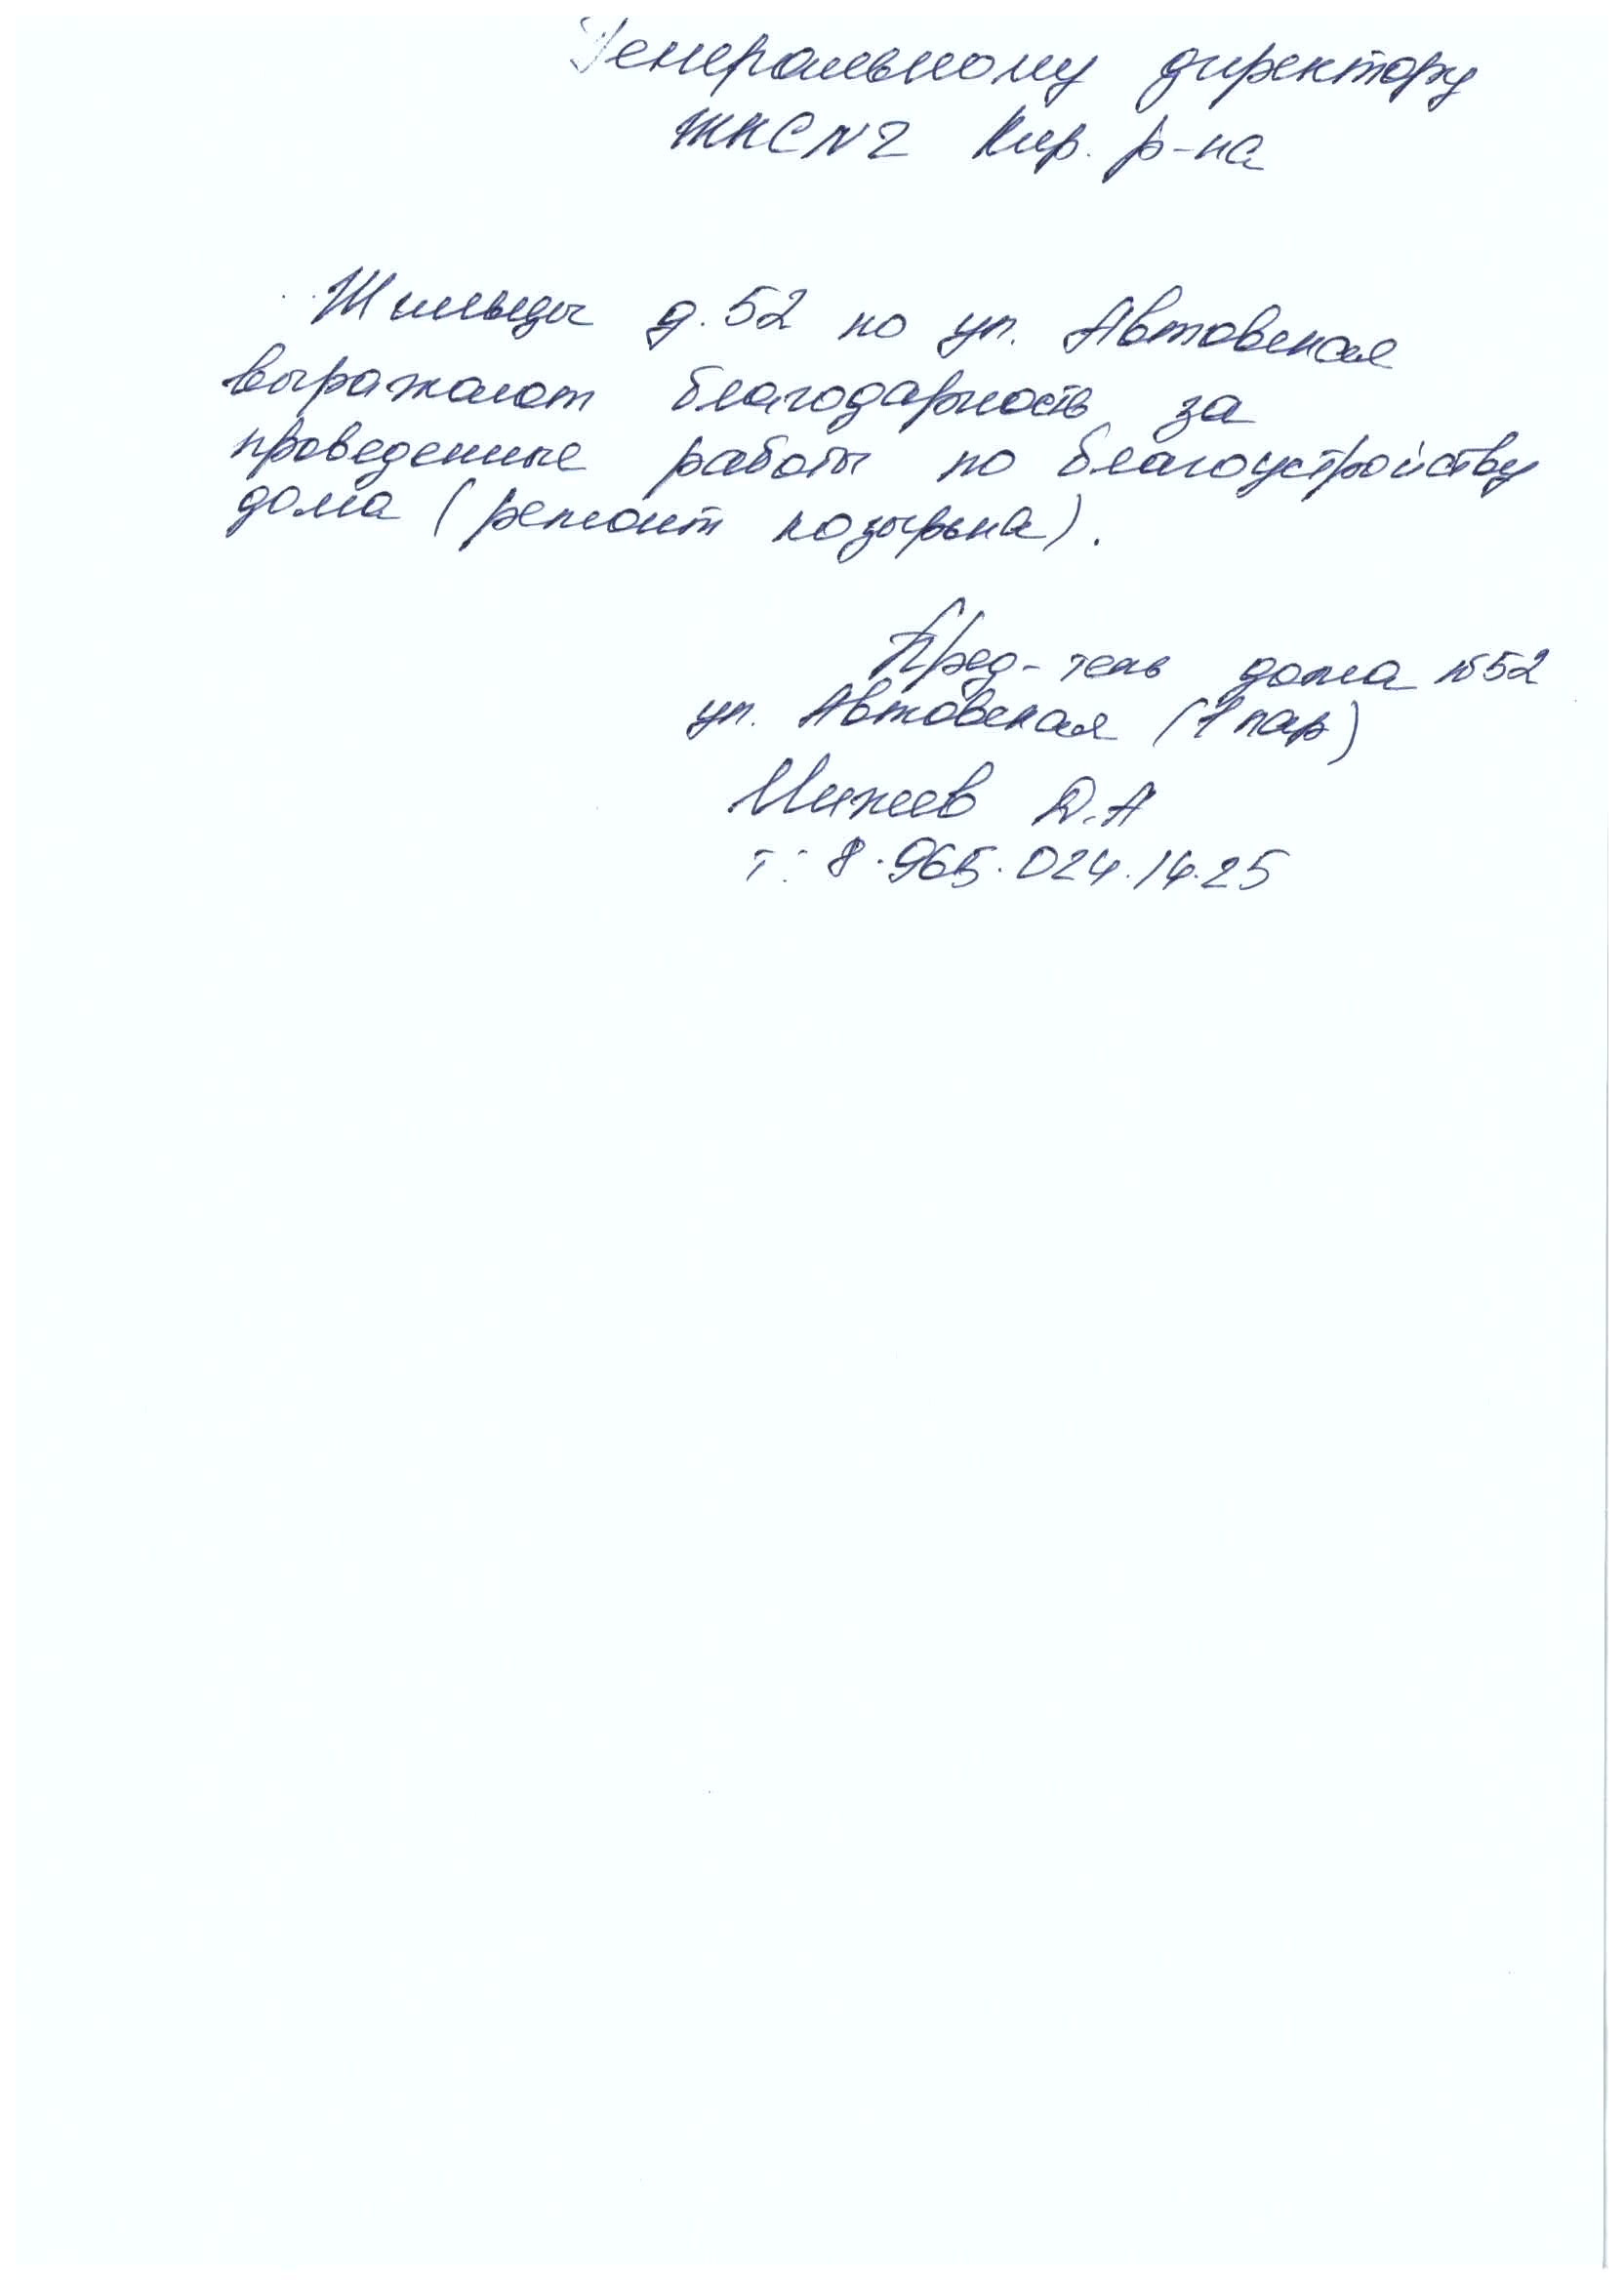 Генеральному директору
ЖКС N2 Кир. р-на
Жильцы д. 52 по ул. Автовская
выражают благодарность за
проведенные работы по благоустройству
дома (ремонт козырька).
Пред-тель дома №52
ул. Автовская (1 пар)
Михеев Д.А
т: 8.965.024.14.25